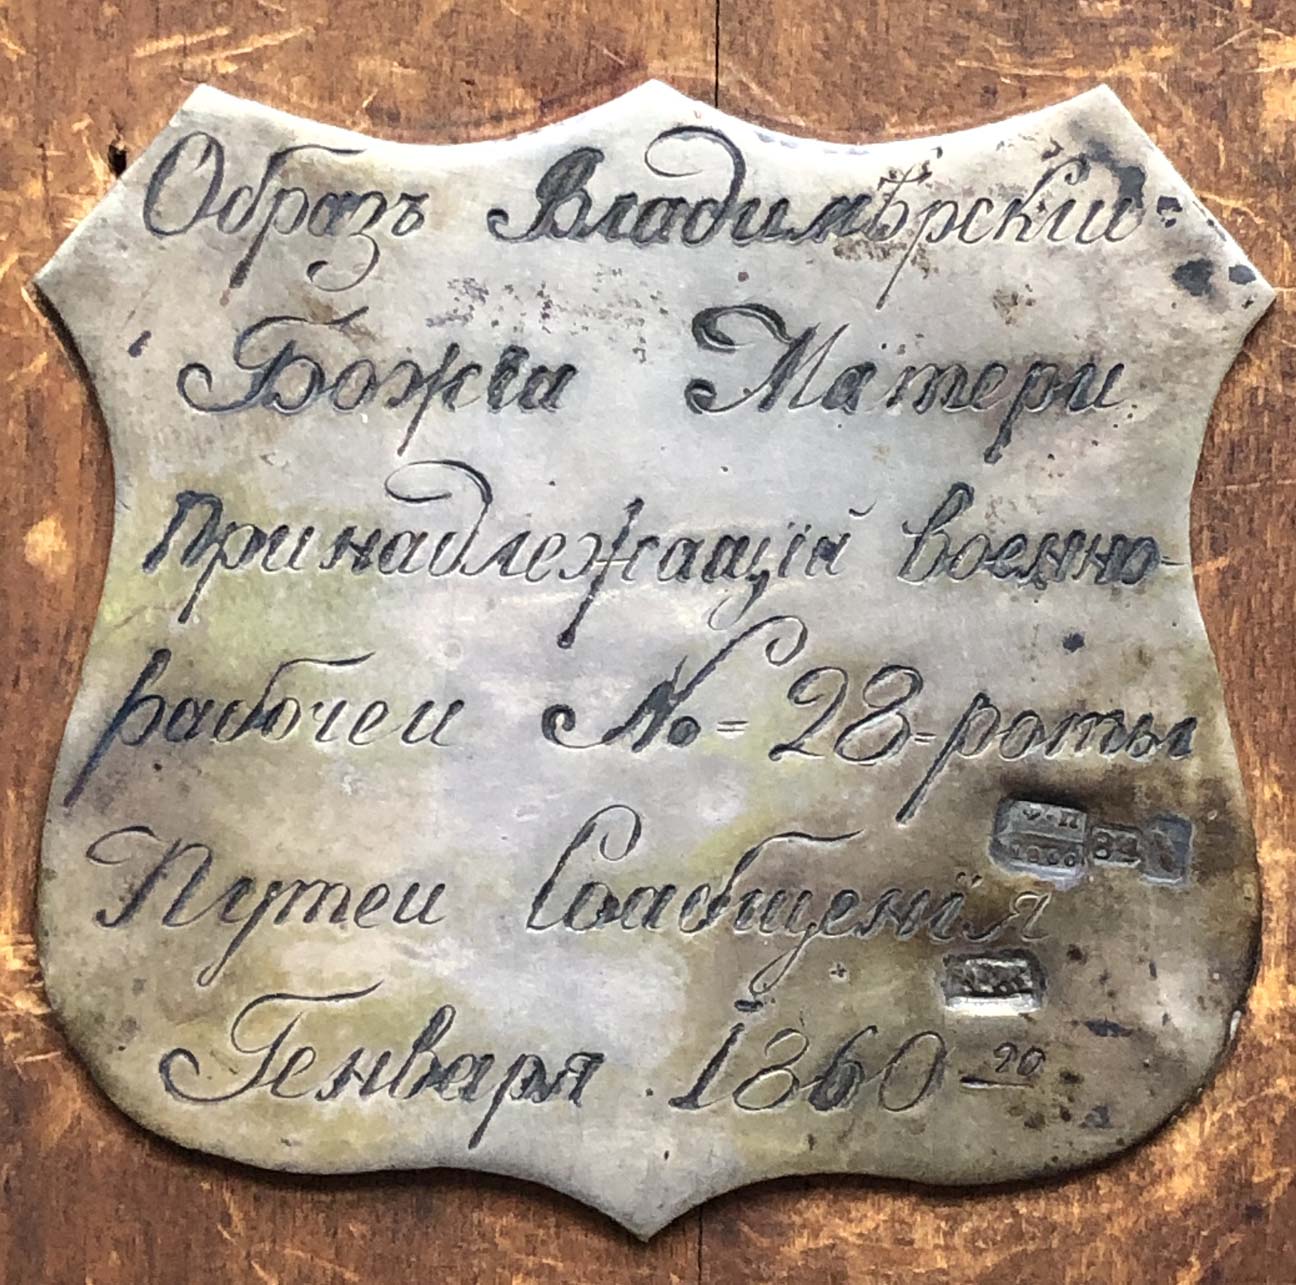 Образъ Владимѣрскіи
Божіи Матери
Принадлежащій военно-
рабочеи №=28=роты
Путеи Соабщенія
84
Генваря 1860 го